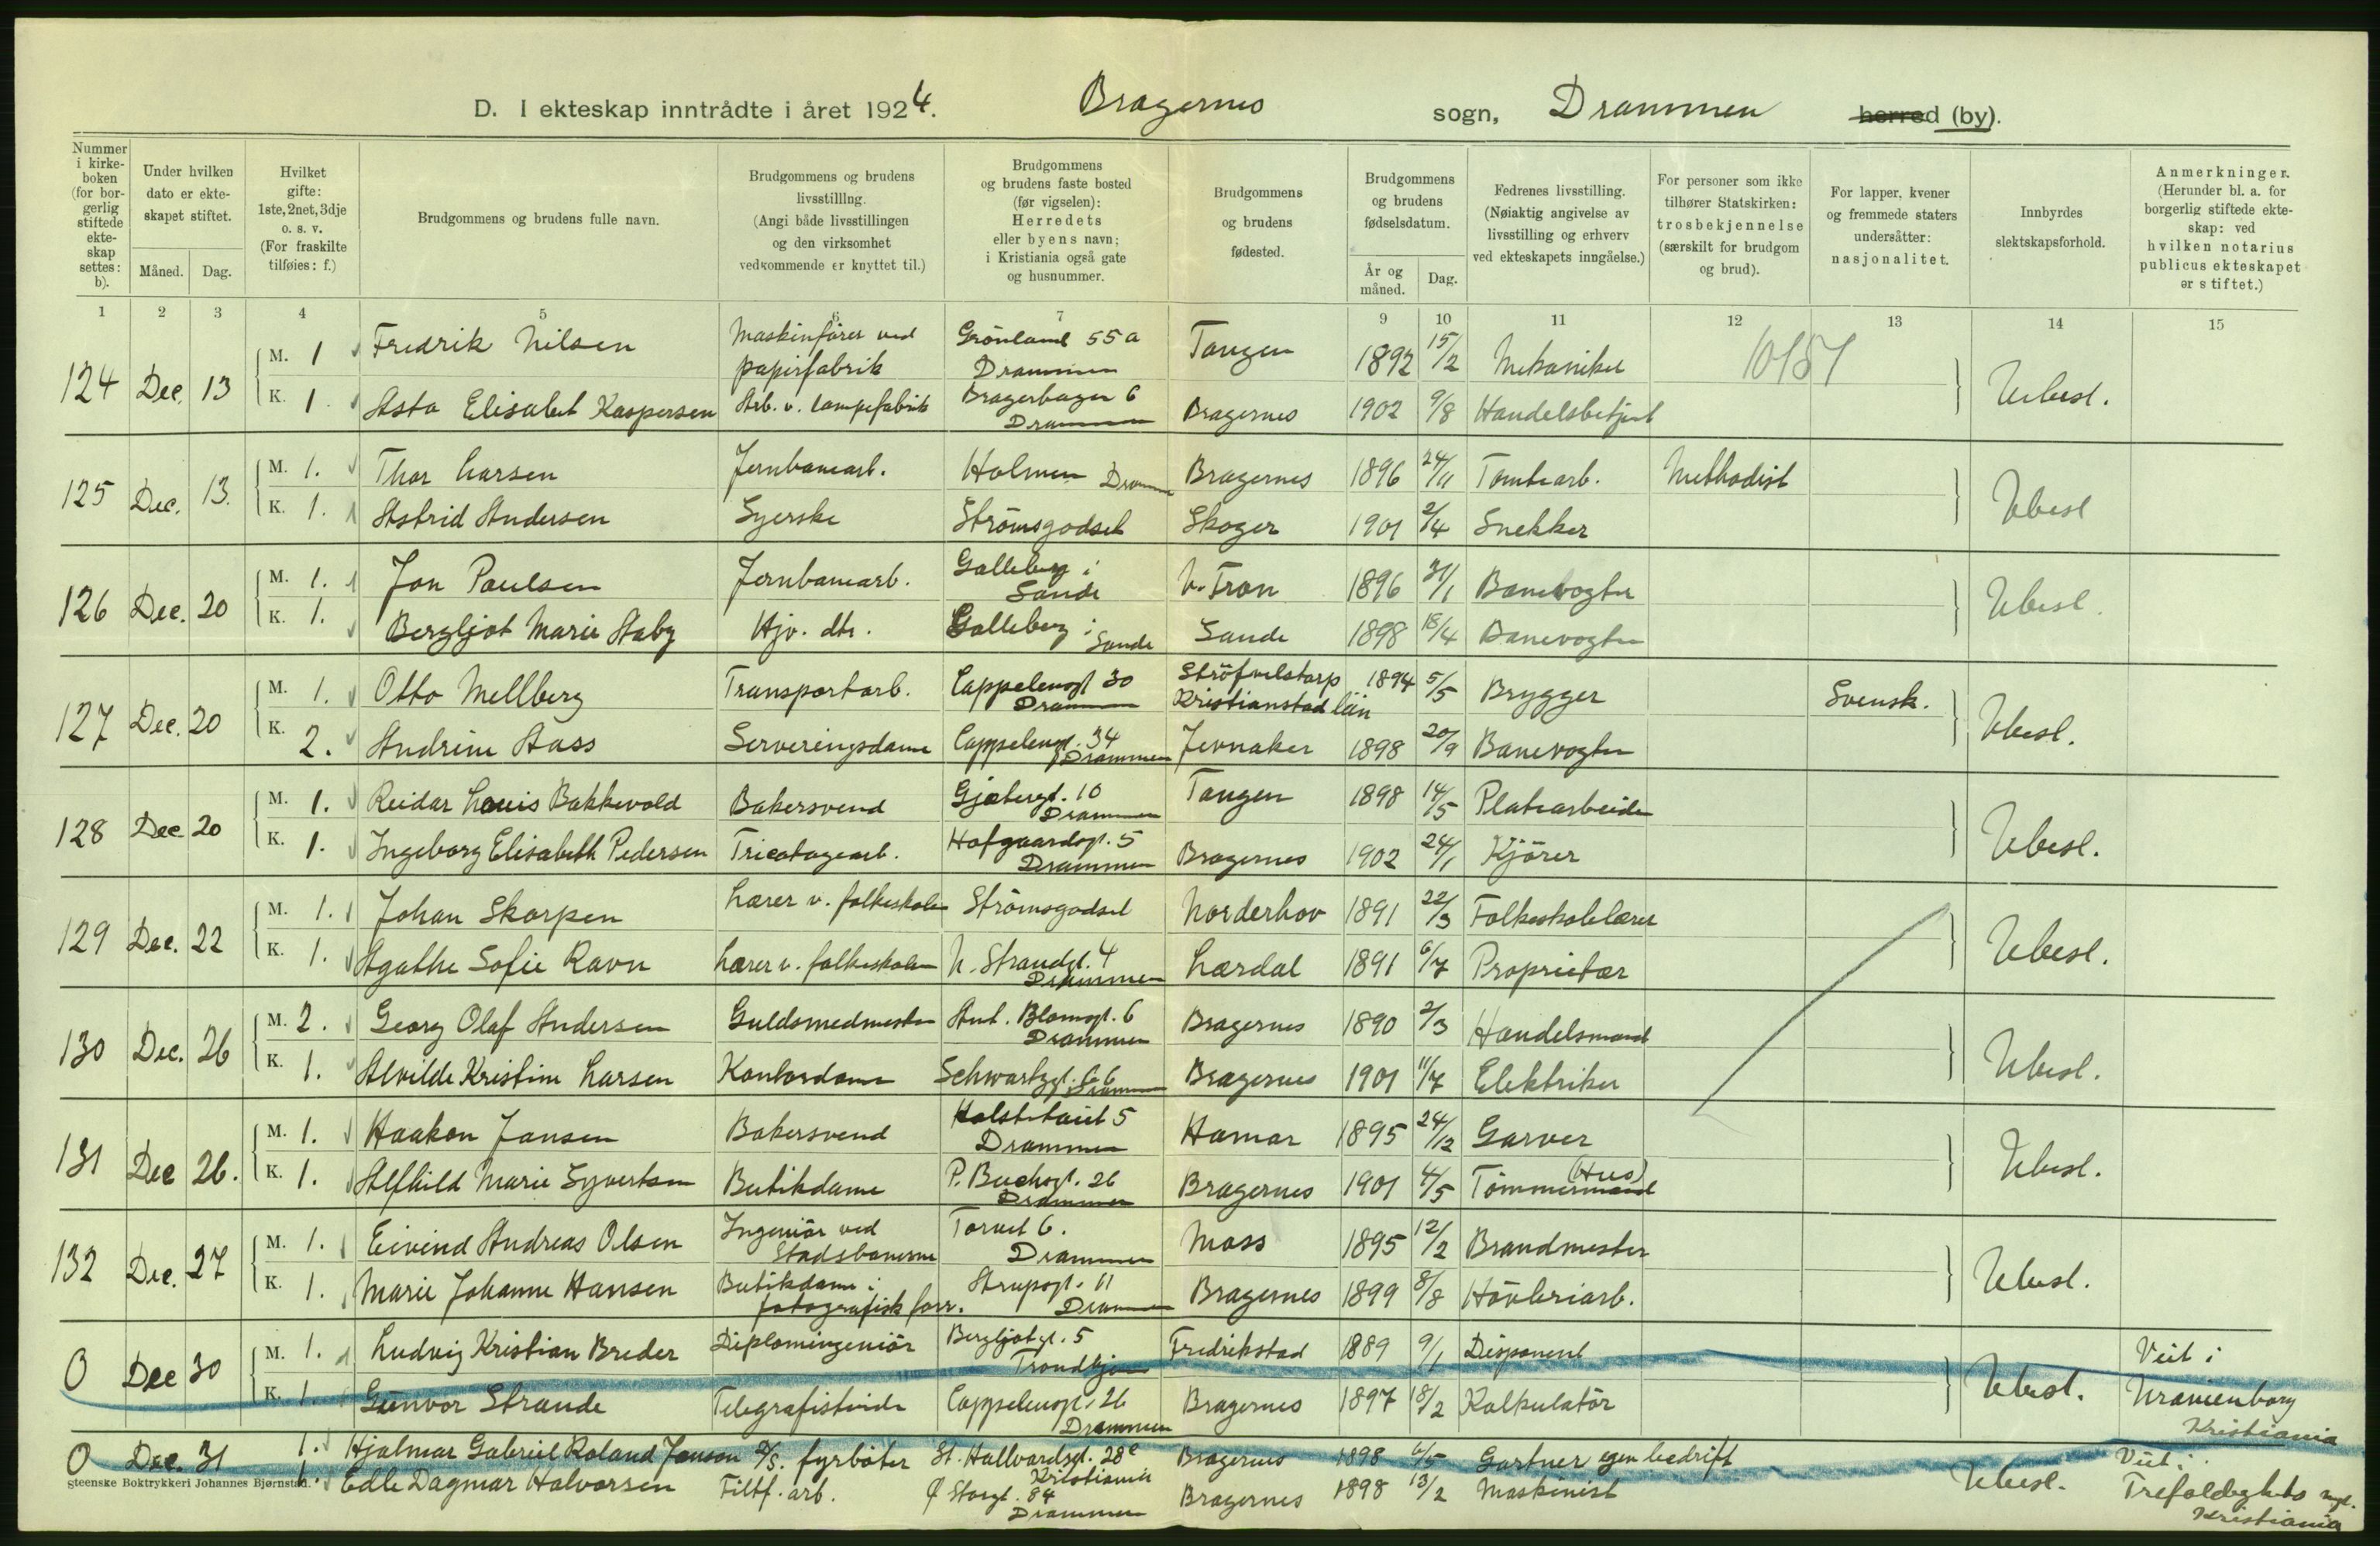 D. I ekteskap inntrådte i året 1924. Bragernes sogn, Drammen herred (by).
Nummer i kirkeboken (for borgerlig stiftede ekteskap settes: b).
Under hvilken dato er ekteskapet stiftet.
Måned. Dag.
Hvilket gifte: 1ste, 2net, 3dje o. s. v. (For fraskilte tilføies: f.)
Brudgommens og brudens fulle navn.
Brudgommens og brudens livsstilllng. (Angi både livsstillingen og den virksomhet vedkommende er knyttet til.)
Brudgommens og brudens faste bosted (før vigselen): Herredets eller byens navn; i Kristiania også gate og husnummer.
Brudgommens og brudens fødested.
Brudgommens og brudens fødselsdatum.
År og måned. Dag.
Fedrenes livsstilling. (Nøiaktig angivelse av livsstilling og erhverv ved ekteskapets inngåelse.)
For personer som ikke tilhører Statskirken: trosbekjennelse (særskilt for brudgom og brud).
For lapper, kvener og fremmede staters undersåtter: nasjonalitet.
Innbyrdes slektskapsforhold.
Anmerkninger. (Herunder bl. a. for borgerlig stiftede ekteskap: ved hvilken notarius publicus ekteskapet er stiftet.)
1 2 3 4 5 6 7 9 10 11 12 13 14 15
124 Dec. 13 M. 1 Fredrik Nilsen Maskinfører ved papirfabrik Grönland 55a Drammen Tangen 1892 15/2 Mekaniker 10151
K. 1 Asta Elisabet Kaspersen Arb. v. lampefabrik Bragerhagen 6 Drammen Bragernes 1902 9/8 Handelsbetjent Ubesl.
125 Dec. 13. M. 1. Thor Larsen Jernbanearb. Holmen Drammen Bragernes 1896 24/11 Tomtearb. Methodist
K. 1. Astrid Andersen Syerske Strömsgodset Skoger 1901 2/4 Snekker Ubesl
126 Dec. 20 M. 1. Jon Paulsen Jernbanearb. Galleberg i Sande N. Fron 1896 31/1 Banevogter
K. 1. Bergljot Marie Aaby Hjv. dtr. Galleberg i Sande Sande 1898 18/4 Banevogter Ubesl.
127 Dec. 20 M. 1. Otto Mellberg Transportarb. Cappelensgt 30 Drammen Ströfvelstorp Kristianstad län 1894 5/5 Brygger Svensk.
K. 2. Andrine Aass Serveringsdame Cappelensgt. 34 Drammen Jevnaker 1898 20/9 Banevogter Ubesl.
128 Dec 20 M. 1. Reidar Louis Bakkevold Bakersvend Gjætergt. 10 Drammen Tangen 1898 14/5 Platearbeider
K. 1. Ingeborg Elisabeth Pedersen Tricotagearb. Hofgaardsgt. 5 Drammen Bragernes 1902 24/1 Kjörer Ubesl.
129 Dec. 22 M. 1. Johan Skarpen Lærer v. folkeskolen Strömsgodset Norderhov 1891 22/3 Folkeskolelærer
K. 1. Agathe Sofie Ravn Lærer v. folkeskolen N. Strandgt. 4 Drammen Lærdal 1891 6/7 Proprietær Ubesl.
130 Dec. 26 M. 2. Georg Olaf Andersen Guldsmedmester Ant. Blomsgt. 6 Drammen Bragernes 1890 2/3 Handelsmand
K. 1. Alvilde Kristine Larsen Kontordame Schwartzgt. 66 Drammen Bragernes 1901 11/7 Elektriker Ubesl.
131 Dec 26. M. 1. Haakon Jansen Bakersvend Drammen Hamar 1895 24/12 Garver
K. 1. Alfhild Marie Syvertsen Butikdame P. Buchsgt. 26 Drammen Bragernes 1901 4/5 Tömmermand (Hus) Ubesl.
132 Dec. 27 M. 1. Eivind Andreas Olsen Ingeniör ved Stadsbanerne Torvet 6. Drammen Moss 1895 12/2 Brandmester
K. 1. Marie Johanne Hansen Butikdame i fotografisk forr. Strupsgt. 11 Drammen Bragernes 1899 8/8 Hövleriarb. Ubesl.
0 Dec 30 M. 1. Ludvig Kristian Breder Diplomingeniör Bergljotgt. 5 Trondhjem Fredrikstad 1889 9/1 Disponent Viet i
K. 1. Gunvor Strande Telegrafistinde Cappelensgt. 26 Drammen Bragernes 1897 18/2 Kalkulatör Ubesl. Uranienborg Kristiania
0 Dec. 31 1. Hjalmar Gabriel Roland Janson D/S. fyrböter St. Hallvardsgt. 28c Kristiania Bragernes 1898 6/5 Gartner egen bedrift Viet i
1. Edle Dagmar Halvorsen Filtf. arb. Ø Storgt. 84 Drammen Bragernes 1898 13/2 Maskinist Ubesl. Trefoldighets Kristiania
steenske Boktrykkeri Johannes Bjørnstad.